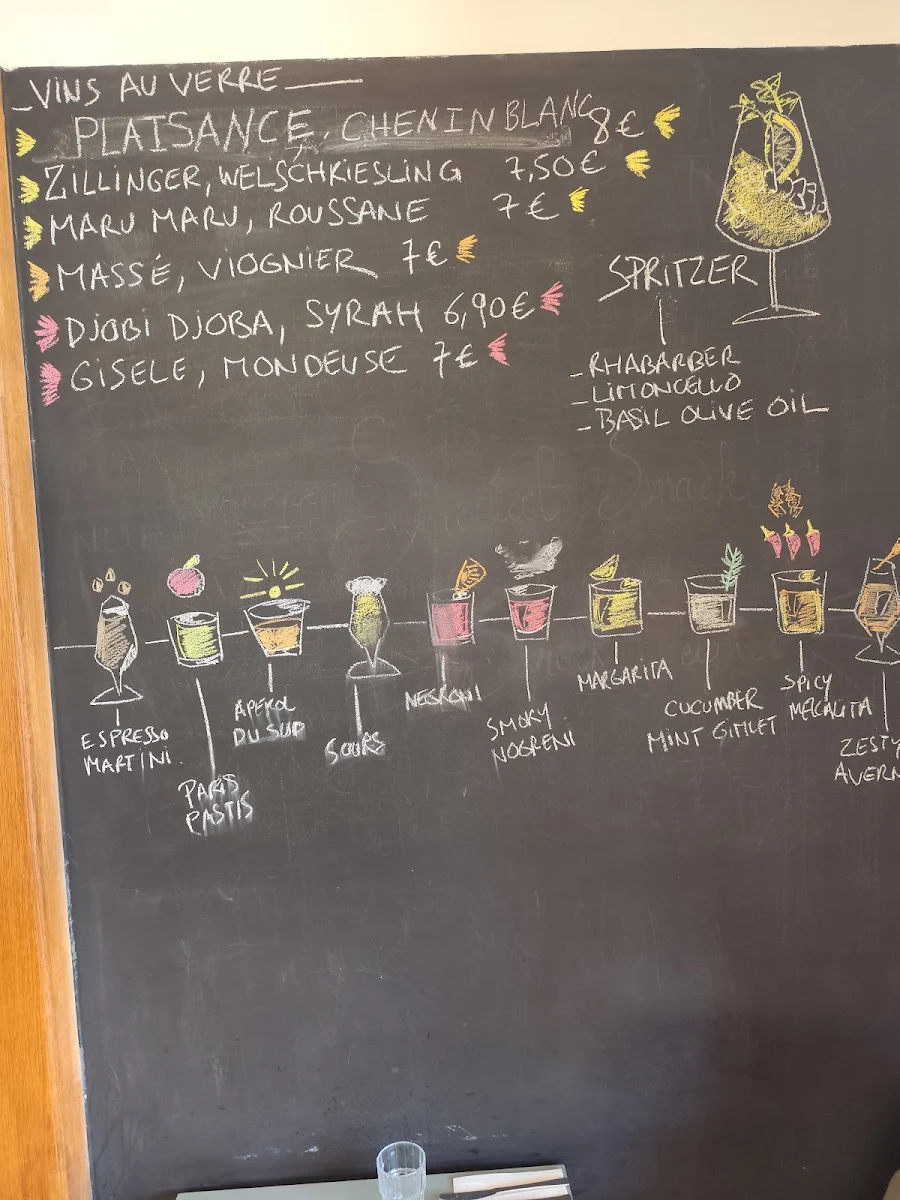 VINS AU VERRE
PLAISANCE, CHENIN BLANC 8€
ZILLINGER, WELSCHRIESLING 7,50€
MARU MARU, ROUSSANE 7€
MASSÉ, VIOGNIER 7€
DJOBI DJOBA, SYRAH 6,90€
GISELE, MONDEUSE 7€
SPRITZER
- RHABARBER
- LIMONCELLO
- BASIL OLIVE OIL
ESPRESSO
MARTINI
PARIS
PASTIS
APEROL
DU SUD
SOURS
NEGRONI
SMOKY
NOGRENI
MARGARITA
CUCUMBER
MINT GIMLET
SPICY
MEZCALITA
ZESTY
AVERN